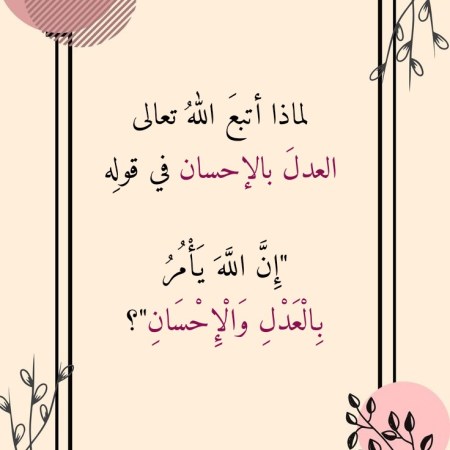 لماذا أتبعَ اللهُ تعالى
العدلَ بالإحسان في قولِه
"إِنَّ اللَّهَ يَأْمُرُ
بِالْعَدْلِ وَالْإِحْسَانِ"؟